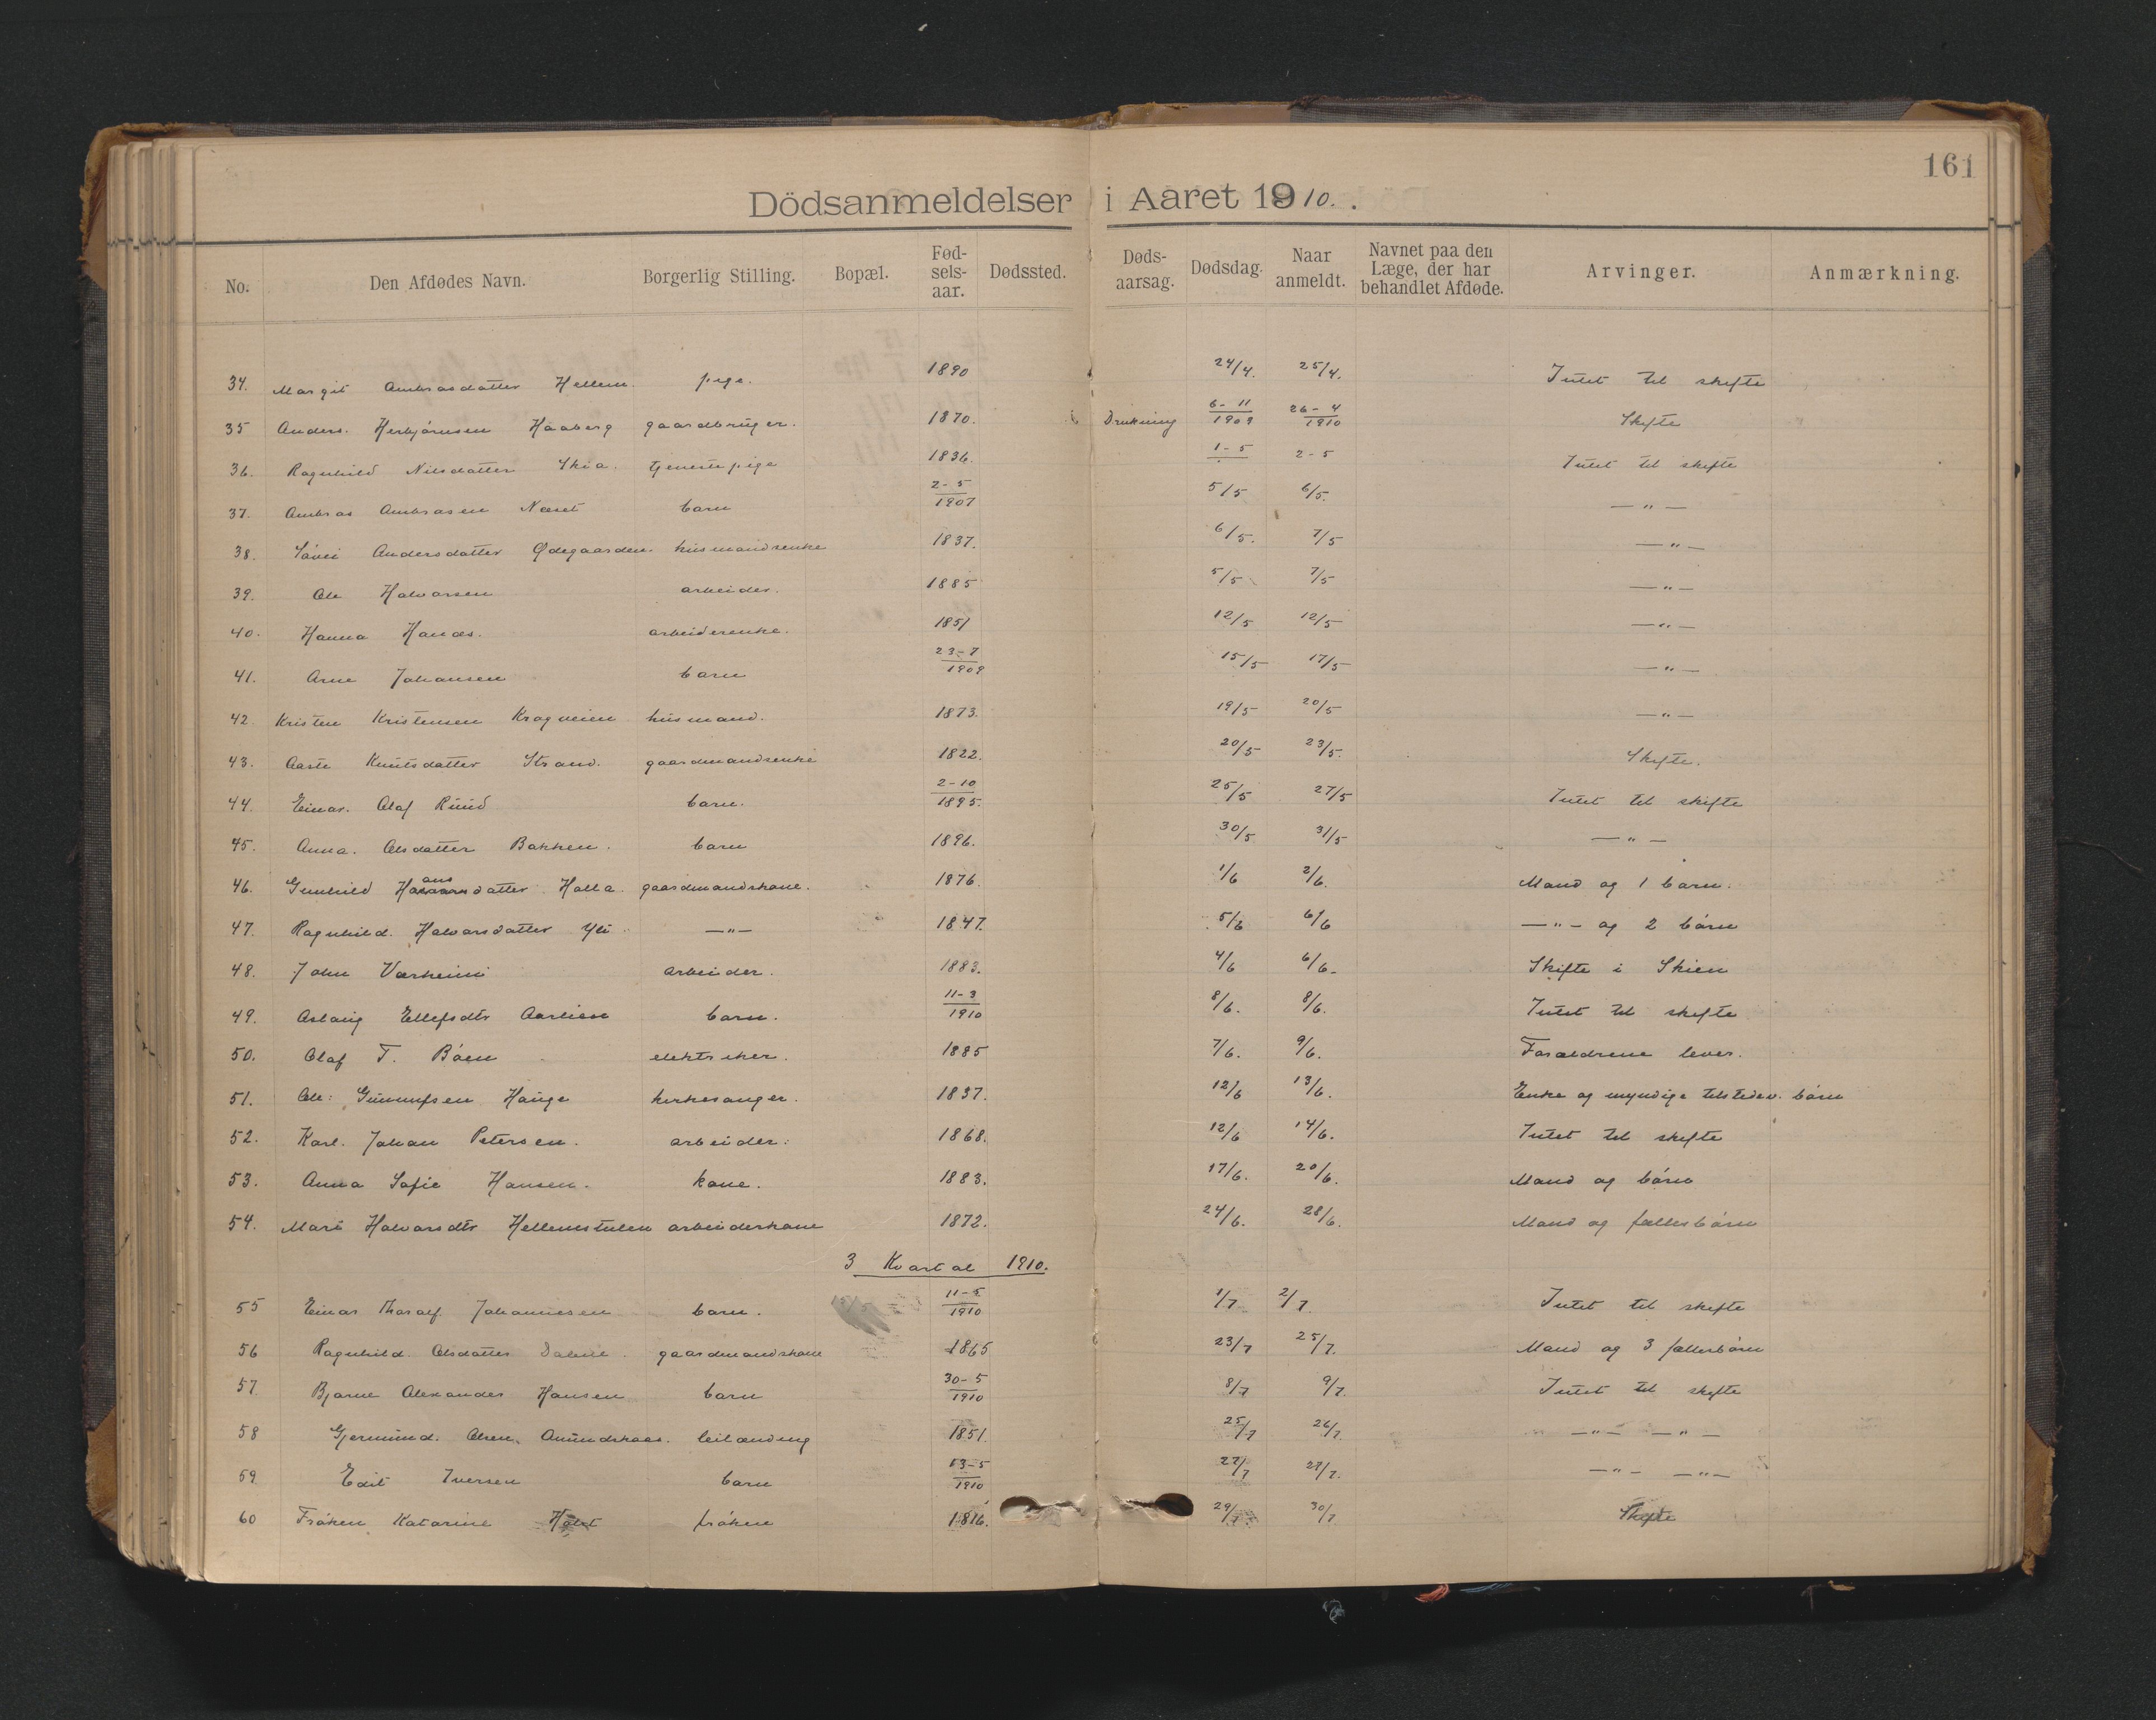 161
Dödsanmeldelser i Aaret 1910.
No. Den Afdødes Navn. Borgerlig Stilling. Bopæl. Fød-sels-aar. Dødssted. Døds-aarsag. Dødsdag. Naar anmeldt. Navnet paa den Læge, der har behandlet Afdøde. Arvinger. Anmærkning.
34. Margit Ambrosdatter Hellem. pige. 1890 24/4. 25/4. Intet til skifte
35 Anders. Herbjørnsen Haaberg gaardbruger. 1870. Drukning 6-11 1909 26-4 1910 Skifte
36. Ragnhild Nilsdatter Skia. tjenestepige 1836. 1-5 2-5 Intet til skifte
37. Ambros Ambrosen Næset barn 2-5 1907 5/5 6/5. —"—
38. Såvei Andersdatter Ødegaarden. husmandsenke 1837. 6/5. 7/5 —"—
39. Ole Halvorsen arbeider. 1885 5/5 7/5 —"—
40. Hanna Hanas. arbeiderenke. 1851 12/5 12/5 —"—
41. Arne Johansen barn 23-7 1909 15/5 17/5 —"—
42 Kristen Kristensen Krogveien husmand. 1873. 19/5 20/5 —"—
43. Aaste Knutsdatter Strand. gaardmandsenke 1822. 20/5 23/5. Skifte.
44. Einar. Olaf Ruud barn. 2-10 1895. 25/5 27/5 Intet til skifte
45. Anna. Olsdatter Bakken. barn 1896. 30/5 31/5 —"—
46. Gunhild Hansdatter Holla. gaardmandskone. 1876. 1/6 2/6. Mand og 1 barn.
47. Ragnhild. Halvorsdatter Yli —"— 1847. 5/6 6/6 —"— og 2 børn
48. John Værheim arbeider. 1883. 4/6 6/6- Skifte i Skien
49. Aslaug Ellefsdtr Aarlien barn. 11-3 1910 8/6. 8/6. Intet til skifte
50. Olaf T. Bøen elektriker. 1885 7/6. 9/6. Forældrene lever.
51. Ole: Gunnufsen Hauge kirkesanger. 1837. 12/6 13/6. Enke og myndige tilstedev. børn
52. Karl. Johan Petersen. arbeider. 1868. 12/6 14/6. Intet til skifte
53. Anna Sofie Hansen. kone. 1883. 17/6. 20/6. Mand og børn
54. Mari Halvorsdtr Hellemstulen arbeiderkone 1872. 24/6. 28/6. Mand og fællesbørn
3 Kvartal 1910.
55 Einar Thoralf. Johannesen barn. 11-5 1910 1/7 2/7 Intet til skifte
56 Ragnhild. Olsdatter gaardmandskone 1865 23/7 25/7. Mand og 3 fællesbørn
57 Bjarne Alexander Hansen barn 30-5 1910 8/7 9/7. Intet til skifte
58 Gjermund. Olsen. leilænding 1851. 25/7 26/7. —"— —"—
59 Edit Iversen barn 13-5 1910 27/7 27/7. —"— —"—
60 Frøken Katarine Holst frøken 1816. 29/7 30/7 Skifte